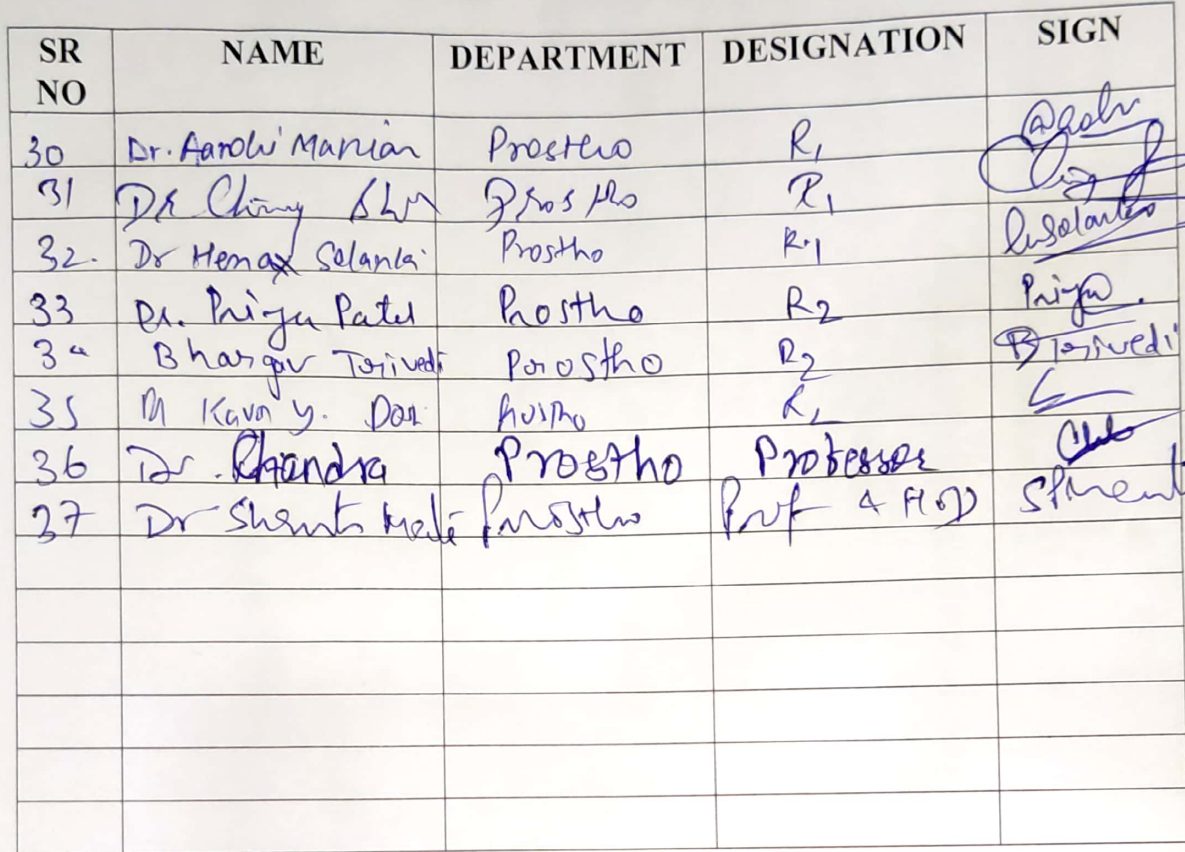 SR NO NAME DEPARTMENT DESIGNATION SIGN
30 Dr. Aarohi Maniar Prostho R1
31 Dr Prostho R1
32. Dr Henax Solanki Prostho R.1 Solanki
33 Dr. Priya Patel Prostho R2 Priya
34 Bhargav Trivedi Prostho R2 B Trivedi
35 Kavan y. Prostho
36 Dr. Chandra Prostho Professor
37 Dr Prostho Prof & HOD